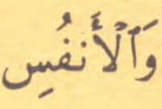 وَٱلْأَنفُسِ